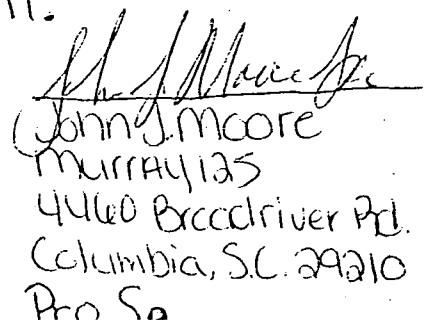 John J. Moore
Murray 125
4460 Broadriver Rd.
Columbia, S.C. 29210
Pro Se